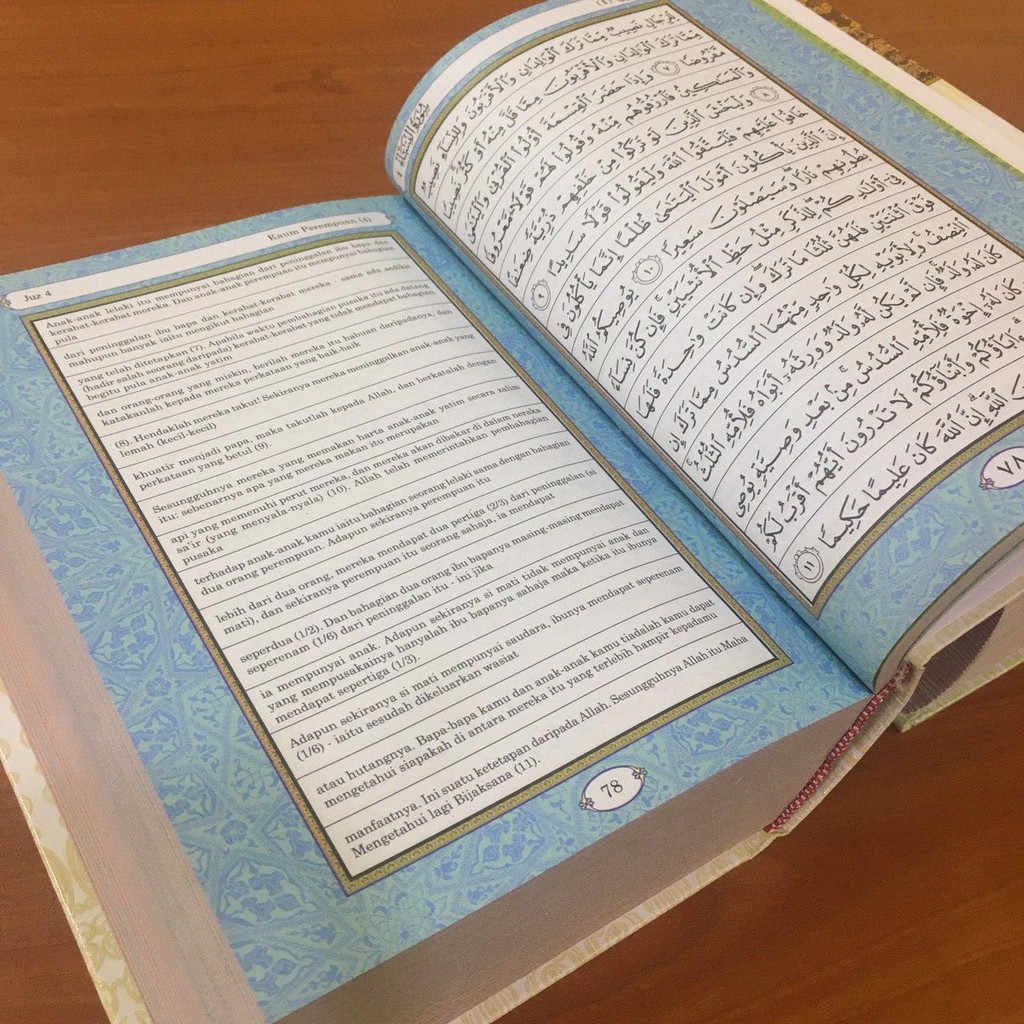 Juz 4
Kaum Perempuan (4)
Anak-anak lelaki itu mempunyai bahagian dari peninggalan ibu bapa dan
kerabat-kerabat mereka. Dan anak-anak perempuan itu mempunyai bahagian
pula
dari peninggalan ibu bapa dan kerabat-kerabat mereka - sama ada sedikit
mahupun banyak iaitu mengikut bahagian
yang telah ditetapkan (7). Apabila waktu pembahagian pusaka itu ada datang
(hadir salah seorang daripada) kerabat-kerabat yang tidak mendapat bahagian
begitu pula anak-anak yatim
dan orang-orang yang miskin, berilah mereka itu habuan daripadanya, dan
katakanlah kepada mereka perkataan yang baik-baik
(8). Hendaklah mereka takut! Sekiranya mereka meninggalkan anak-anak yang
lemah (kecil-kecil)
khuatir menjadi papa, maka takutlah kepada Allah, dan berkatalah dengan
perkataan yang betul (9).
Sesungguhnya mereka yang memakan harta anak-anak yatim secara zalim
itu: sebenarnya apa yang mereka makan itu merupakan
api yang memenuhi perut mereka, dan mereka akan dibakar di dalam neraka
sa'ir (yang menyala-nyala) (10). Allah telah memerintahkan pembahagian
pusaka
terhadap anak-anak kamu iaitu bahagian seorang lelaki sama dengan bahagian
dua orang perempuan. Adapun sekiranya perempuan itu
lebih dari dua orang, mereka mendapat dua pertiga (2/3) dari peninggalan (si
mati), dan sekiranya perempuan itu seorang sahaja, ia mendapat
seperdua (1/2). Dan bahagian dua orang ibu bapanya masing-masing mendapat
seperenam (1/6) dari peninggalan itu - ini jika
ia mempunyai anak. Adapun sekiranya si mati tidak mempunyai anak dan
yang mempusakainya hanyalah ibu bapanya sahaja maka ketika itu ibunya
mendapat sepertiga (1/3).
Adapun sekiranya si mati mempunyai saudara, ibunya mendapat seperenam
(1/6) - iaitu sesudah dikeluarkan wasiat
atau hutangnya. Bapa-bapa kamu dan anak-anak kamu tiadalah kamu dapat
mengetahui siapakah di antara mereka itu yang terlebih hampir kepadamu
manfaatnya. Ini suatu ketetapan daripada Allah. Sesungguhnya Allah itu Maha
Mengetahui lagi Bijaksana (11).
78
سورة النساء
للرجال نصيب مما ترك الوالدان والأقربون وللنساء نصيب
مما ترك الوالدان والأقربون مما قل منه أو كثر نصيبا
مفروضا ٧ وإذا حضر القسمة أولوا القربى واليتامى
والمساكين فارزقوهم منه وقولوا لهم قولا معروفا
٨ وليخش الذين لو تركوا من خلفهم ذرية ضعافا
خافوا عليهم فليتقوا الله وليقولوا قولا سديدا ٩
إن الذين يأكلون أموال اليتامى ظلما إنما يأكلون في
بطونهم نارا وسيصلون سعيرا ١٠ يوصيكم الله
في أولادكم للذكر مثل حظ الأنثيين فإن كن نساء
فوق اثنتين فلهن ثلثا ما ترك وإن كانت واحدة فلها
النصف ولأبويه لكل واحد منهما السدس مما ترك إن
كان له ولد فإن لم يكن له ولد وورثه أبواه فلأمه الثلث
كان له إخوة فلأمه السدس من بعد وصية يوصي
آباؤكم وأبناؤكم لا تدرون أيهم أقرب لكم
الله إن الله كان عليما حكيما ١١
٧٨